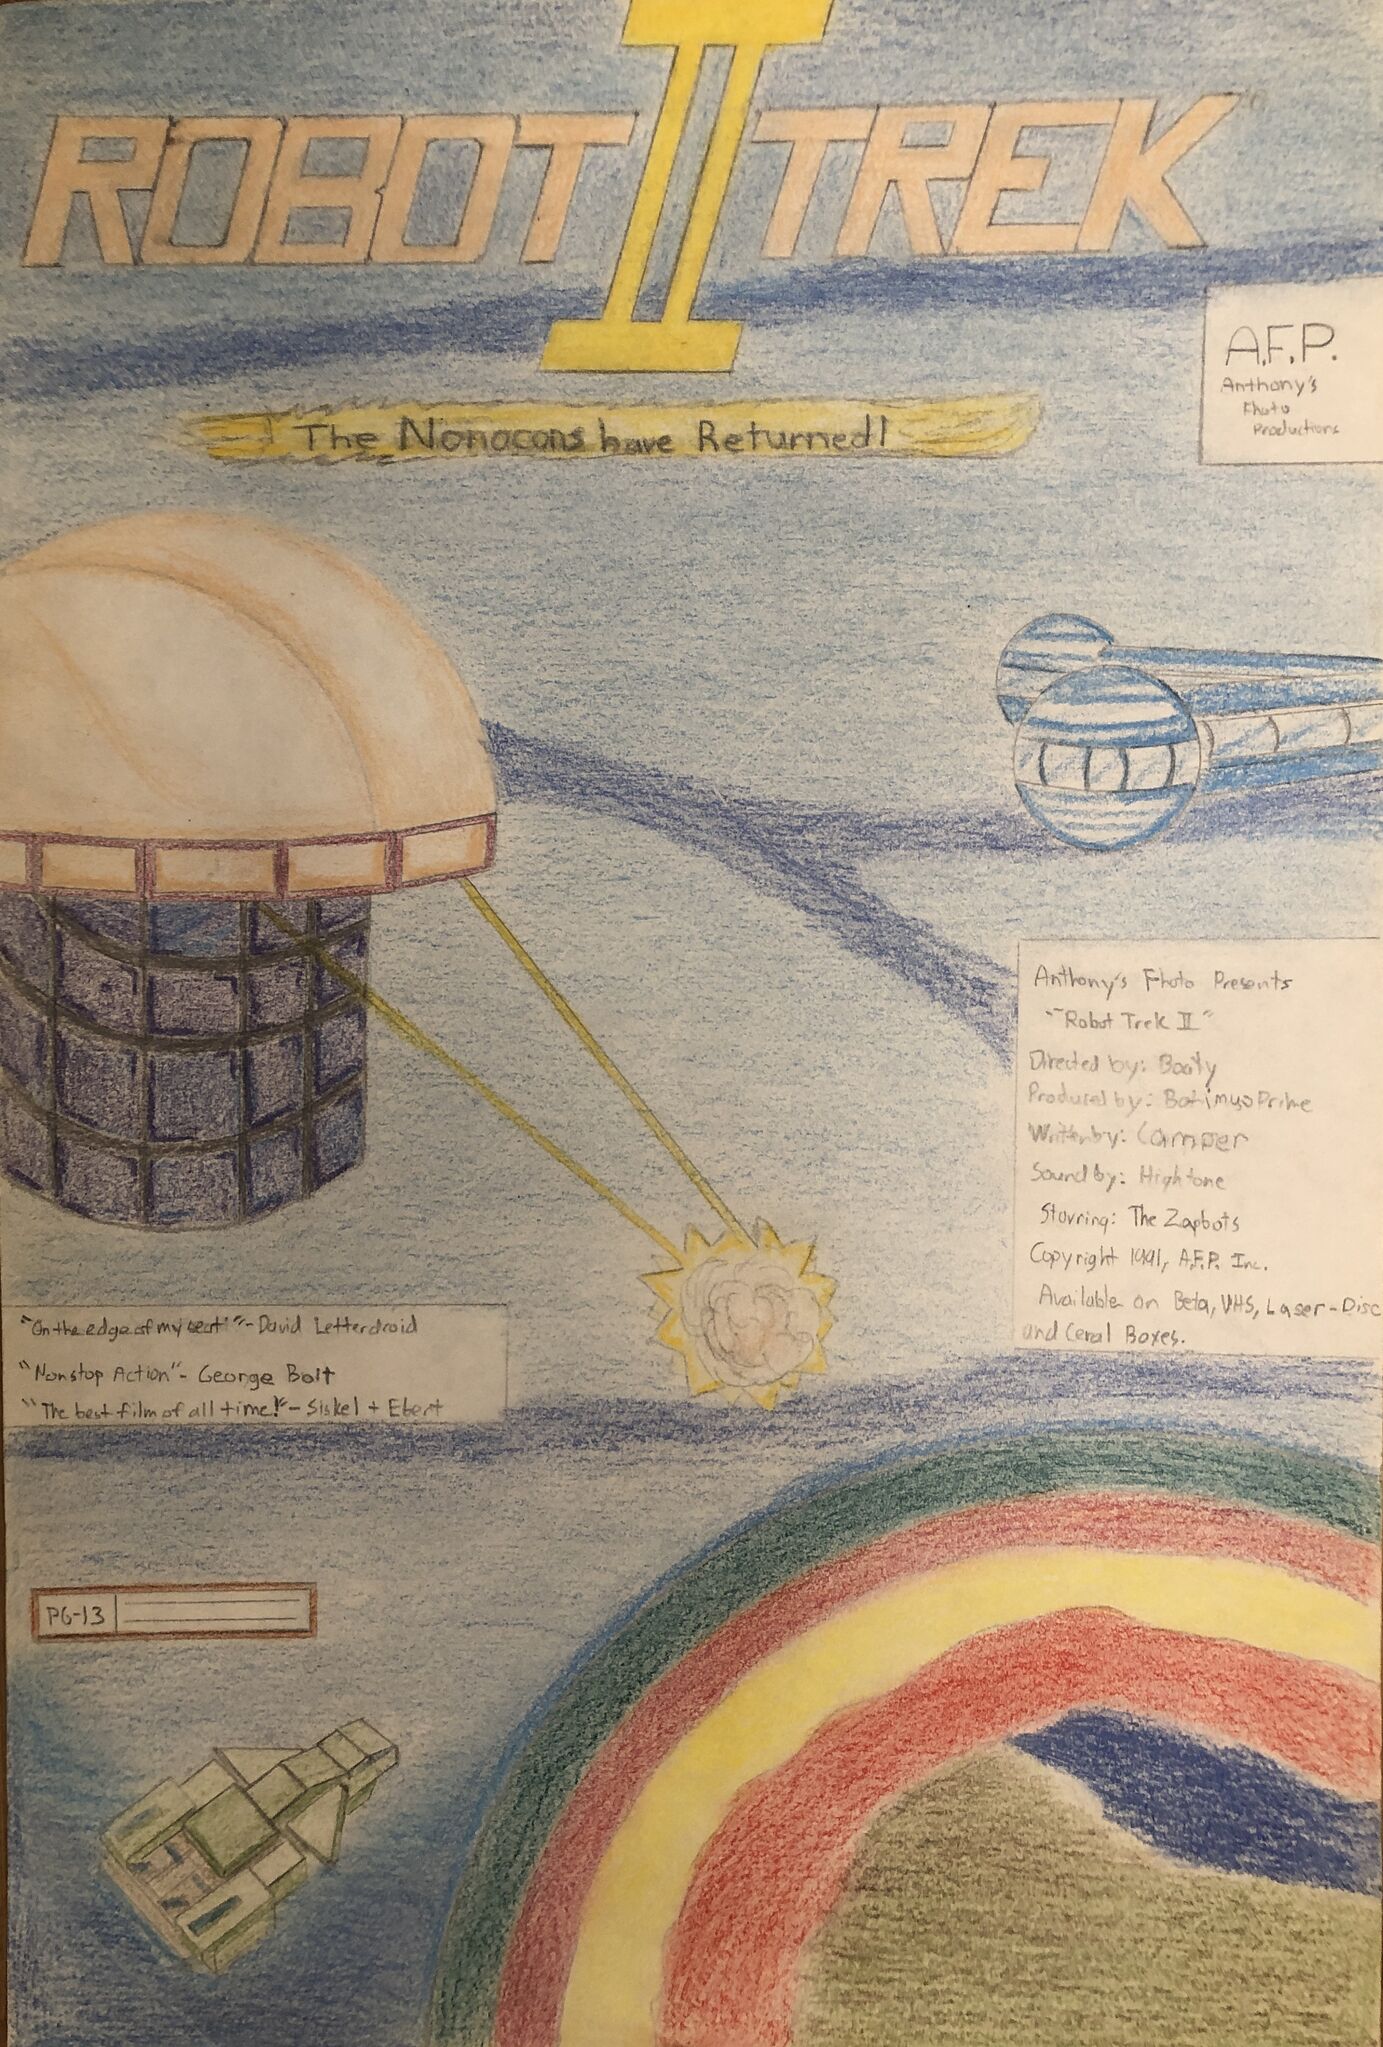 ROBOT II TREK
The Nonocons have Returned!
A.F.P.
Anthony's
Fhoto
Productions
Anthony's Fhoto Presents
"Robot Trek II"
Directed by: Booty
Produced by: Botimus Prime
Written by: Camper
Sound by: Hightone
Starring: The Zapbots
Copyright 1991, A.F.P. Inc.
Available on Beta, VHS, Laser-Disc
and Ceral Boxes.
"On the edge of my seat!"-David Letterdroid
"Nonstop Action"- George Bolt
"The best film of all time!"- Siskel + Ebert
PG-13